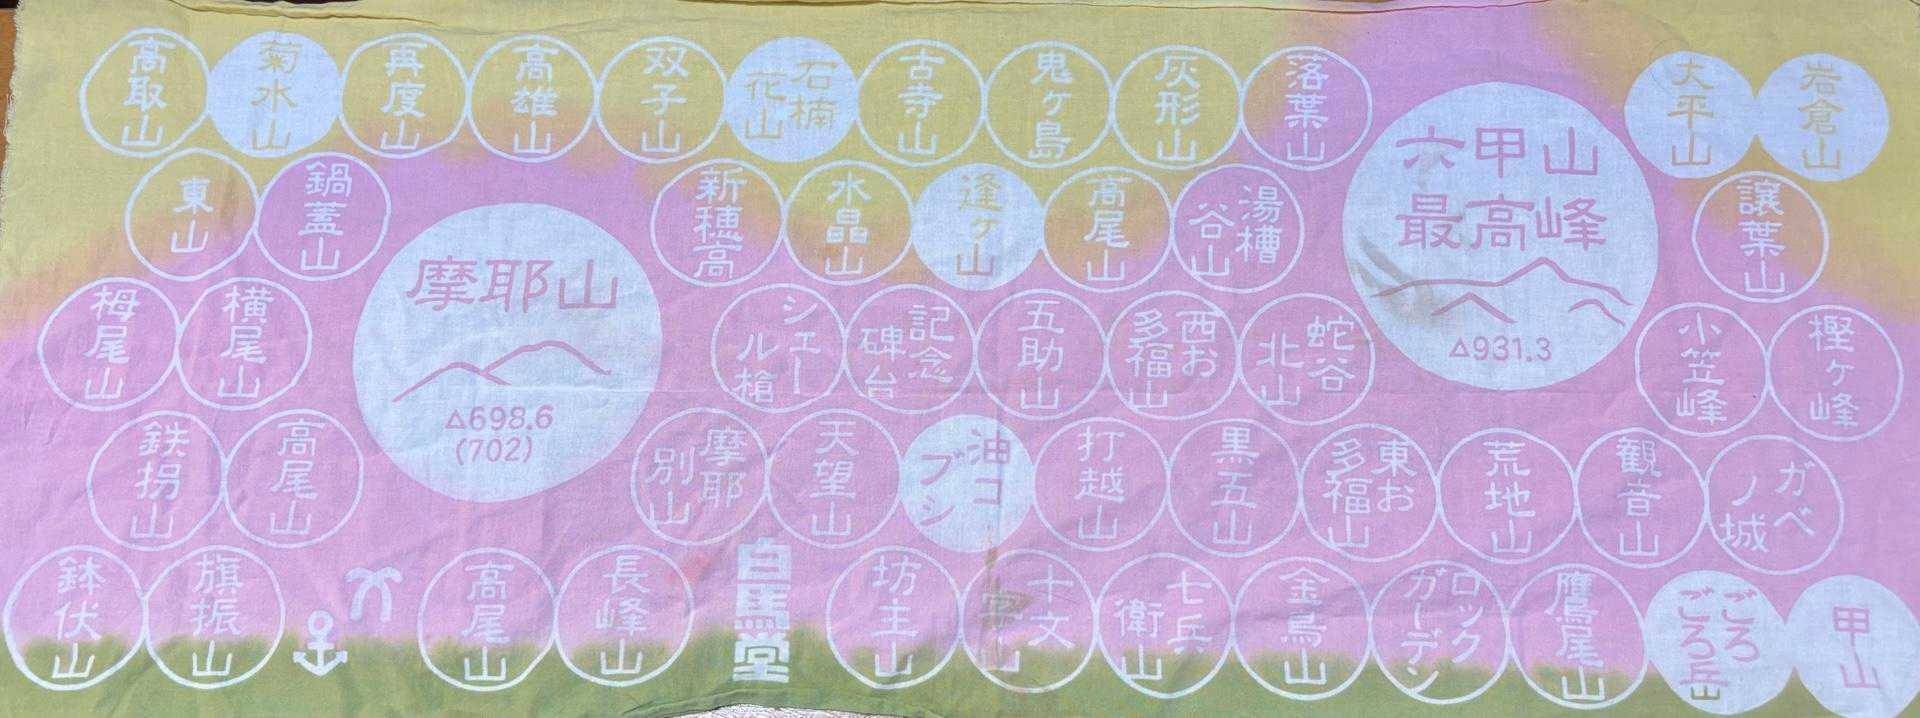 高取山
菊水山
再度山
高雄山
双子山
石楠花山
古寺山
鬼ヶ島
灰形山
落葉山
六甲山
最高峰
△931.3
大平山
岩倉山
東山
鍋蓋山
摩耶山
△698.6
(702)
新穂高
水晶山
逢ヶ山
高尾山
湯槽谷山
譲葉山
栂尾山
横尾山
シェール槍
記念碑台
五助山
西お多福山
蛇谷北山
小笠峰
樫ヶ峰
鉄拐山
高尾山
摩耶別山
天望山
油コブシ
打越山
黒五山
東お多福山
荒地山
観音山
ガベノ城
鉢伏山
旗振山
高尾山
長峰山
白馬堂
坊主山
十文字山
七兵衛山
金鳥山
ロックガーデン
鷹尾山
ごろごろ兵山
甲山